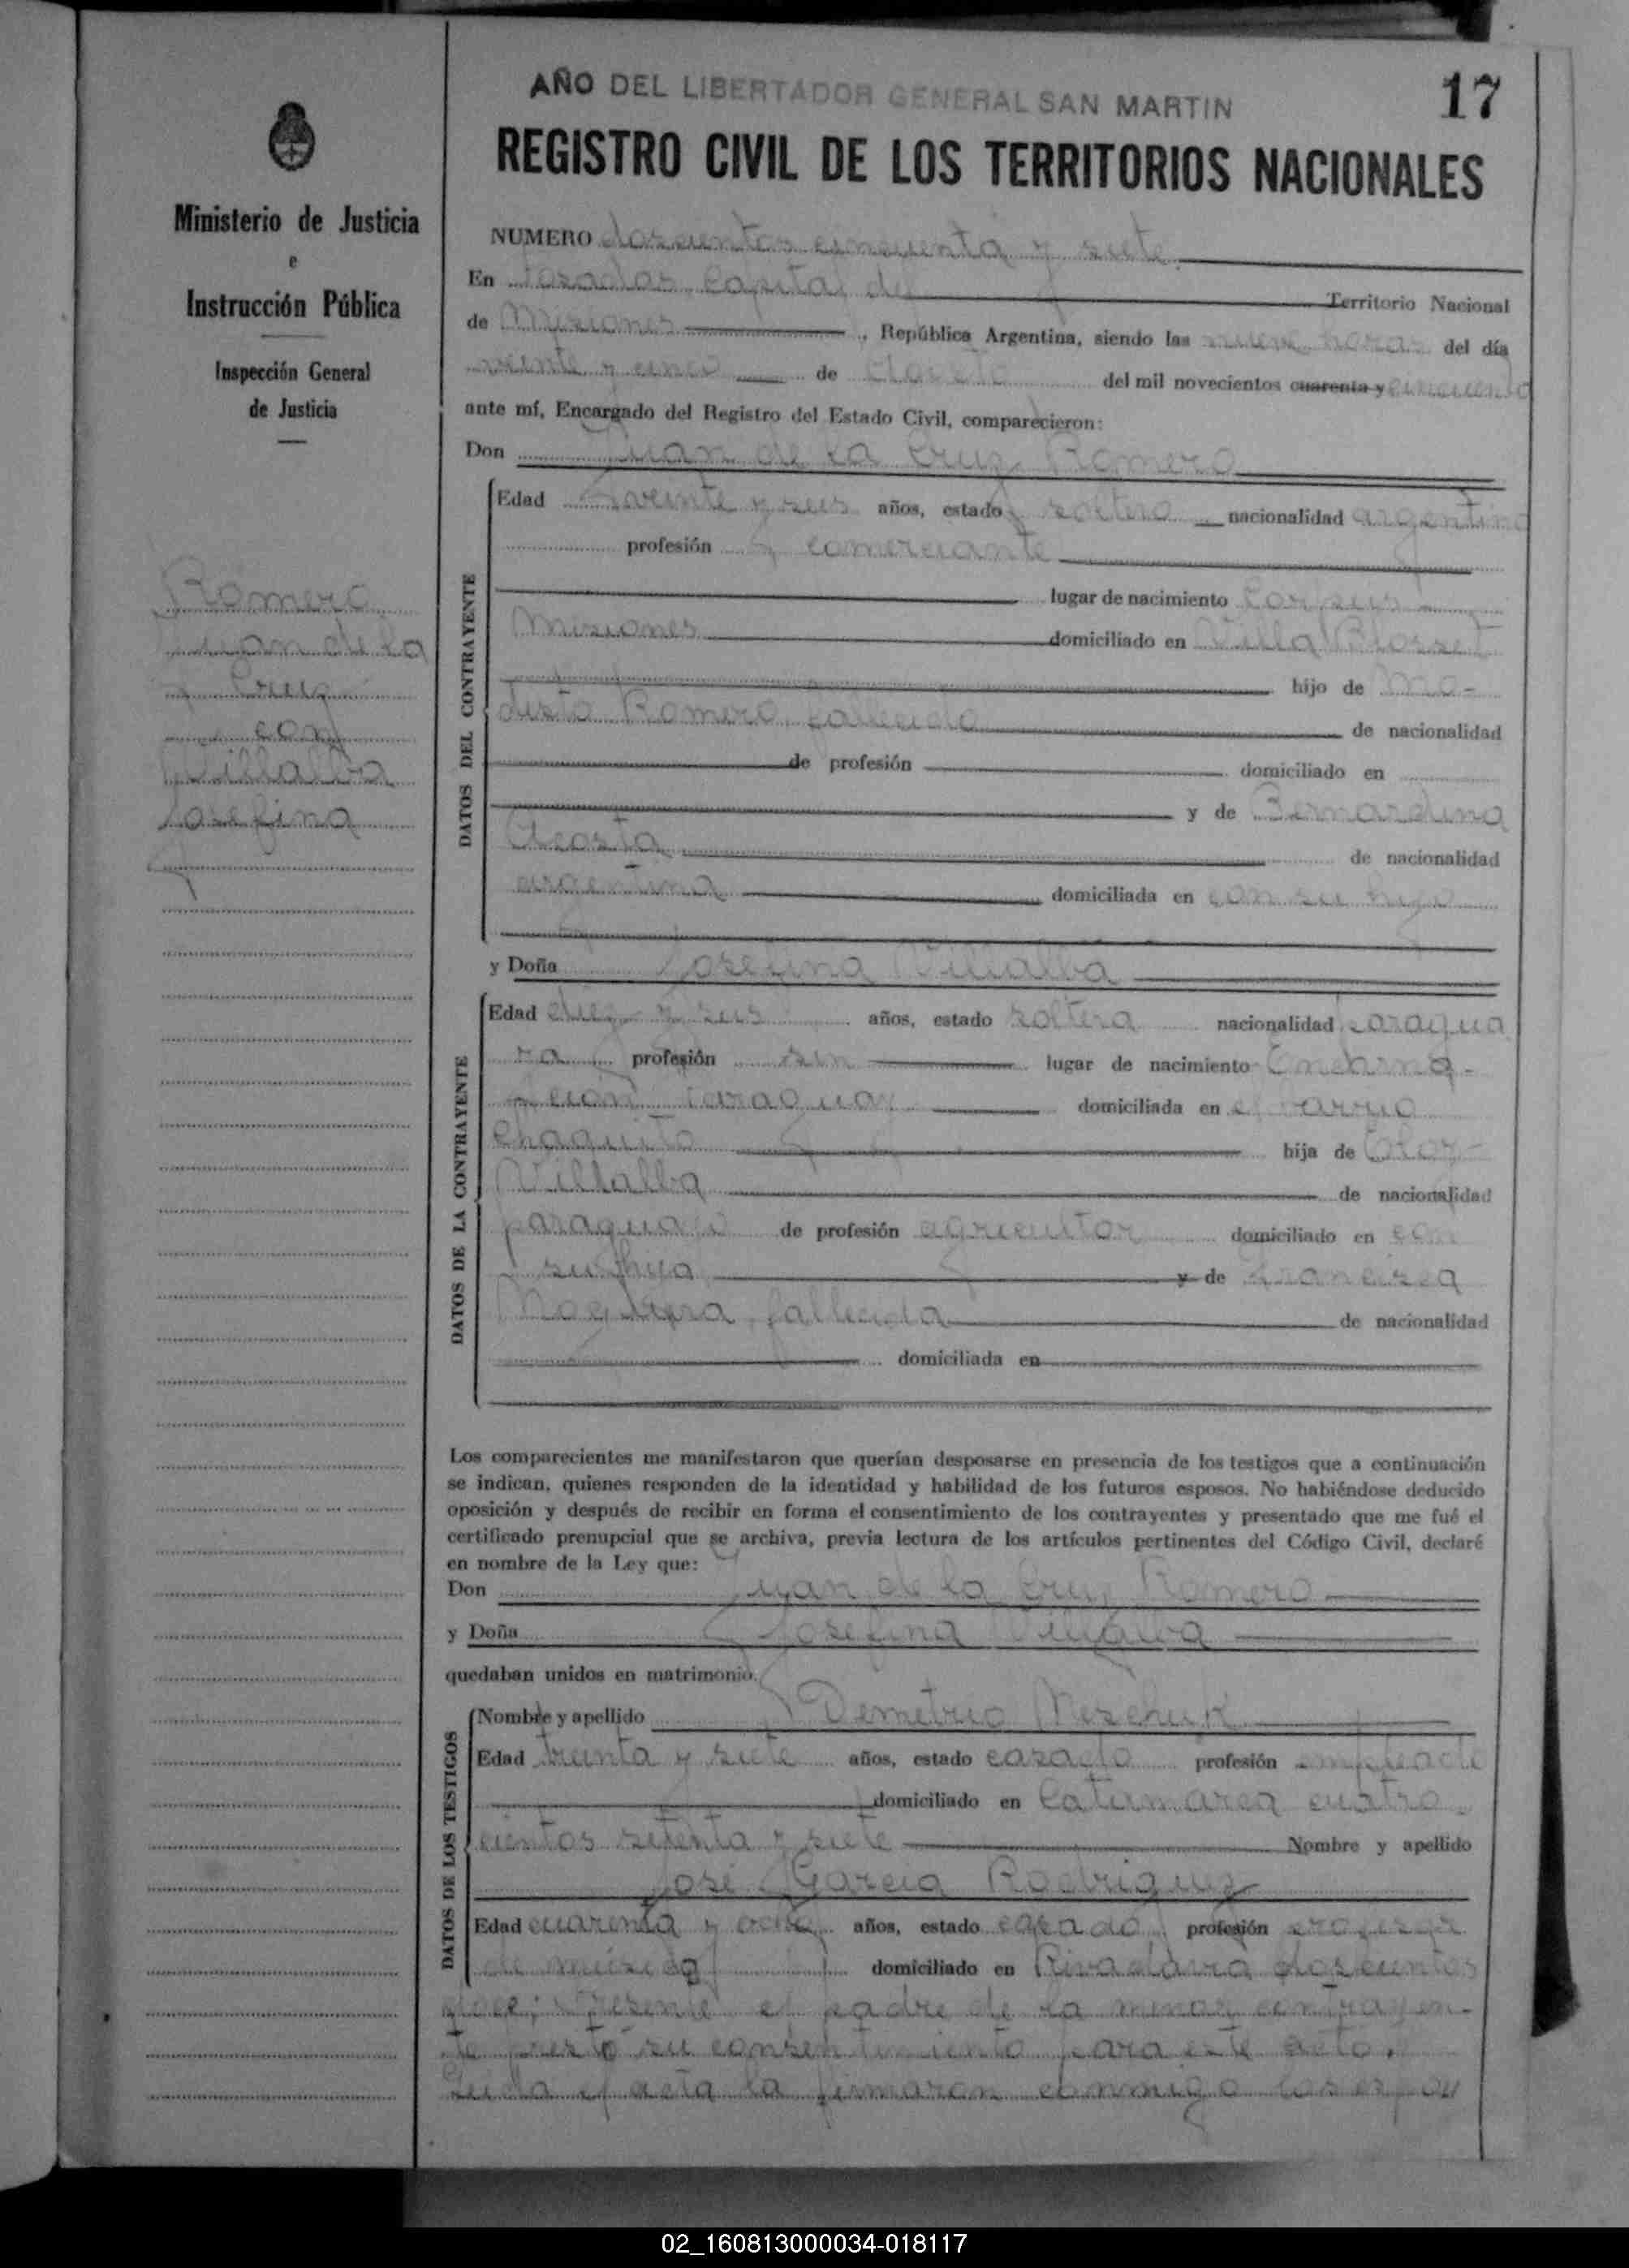 AÑO DEL LIBERTADOR GENERAL SAN MARTIN
17
REGISTRO CIVIL DE LOS TERRITORIOS NACIONALES
Ministerio de Justicia
e
Instrucción Pública
Inspección General
de Justicia
Romero
Juan de la
Cruz
con
Villalba
Josefina
NUMERO doscientos cincuenta y siete
En Posadas, Capital del Territorio Nacional
de Misiones, República Argentina, siendo las nueve horas del día
veinte y cinco de Agosto del mil novecientos cuarenta y cincuenta
ante mí, Encargado del Registro del Estado Civil, comparecieron:
Don Juan de la Cruz Romero
DATOS DEL CONTRAYENTE
Edad veinte y seis años, estado soltero nacionalidad argentino
profesión comerciante
lugar de nacimiento Corpus
Misiones domiciliado en Villa Blosset
hijo de Mo-
desto Romero, fallecido de nacionalidad
de profesión domiciliado en
y de Bernardina
Acosta de nacionalidad
argentina domiciliada en con su hijo
y Doña Josefina Villalba
DATOS DE LA CONTRAYENTE
Edad diez y seis años, estado soltera nacionalidad paragua
ya profesión sin lugar de nacimiento Encarna-
ción Paraguay domiciliada en el barrio
Chaquito hija de
Villalba de nacionalidad
paraguayo de profesión agricultor domiciliado en con
su hija y de Francisca
fallecida de nacionalidad
domiciliada en
Los comparecientes me manifestaron que querían desposarse en presencia de los testigos que a continuación
se indican, quienes responden de la identidad y habilidad de los futuros esposos. No habiéndose deducido
oposición y después de recibir en forma el consentimiento de los contrayentes y presentado que me fué el
certificado prenupcial que se archiva, previa lectura de los artículos pertinentes del Código Civil, declaré
en nombre de la Ley que:
Don Juan de la Cruz Romero
y Doña Josefina Villalba
quedaban unidos en matrimonio.
DATOS DE LOS TESTIGOS
Nombre y apellido Demetrio
Edad treinta y siete años, estado casado profesión empleado
domiciliado en Catamarca cuatro-
cientos setenta y siete Nombre y apellido
José García Rodriguez
Edad cuarenta y ocho años, estado casado, profesión profesor
de música domiciliado en Rivadavia doscientos
doce; Presente el padre de la menor contrayen-
te prestó su consentimiento para este acto.
Leida el acta la firmaron conmigo los espo
02_160813000034-018117